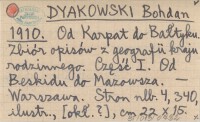 DYAKOWSKI Bohdan
1910. Od Karpat do Bałtyku.
Zbiór opisów z geografji kraju
rodzinnego. Część I. Od
Beskidu do Mazowsza. —
Warszawa. Stron nlb. 4, 340,
ilustr., [okł. ?], cm 22 x 15.